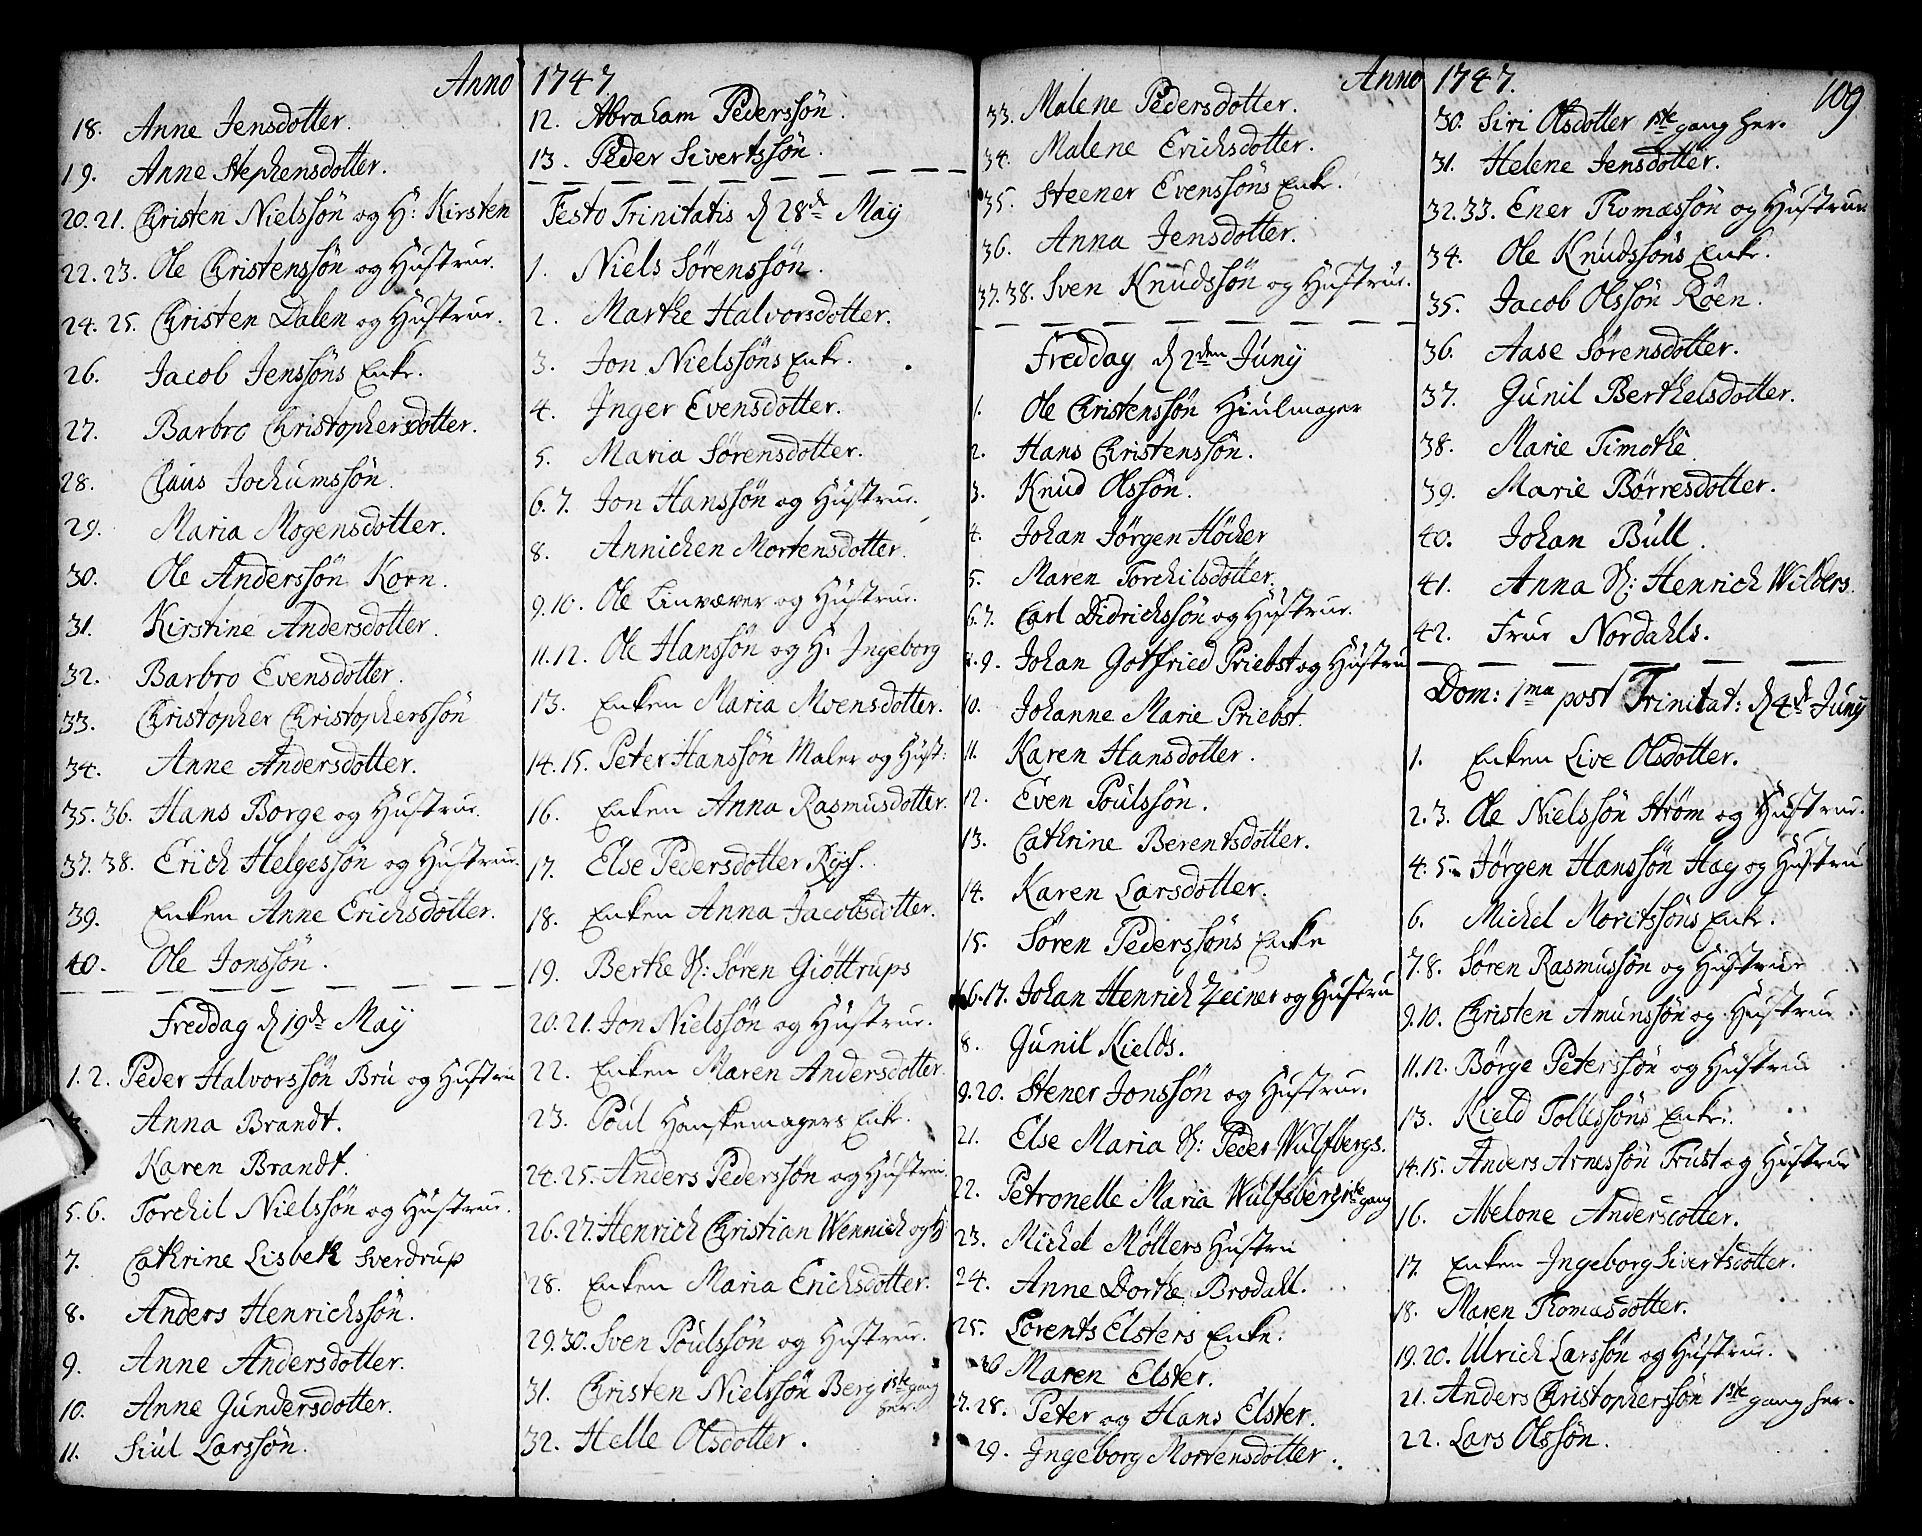 Anno 1747
18. Anne Jensdotter.
19. Anne Stephensdotter.
20. 21. Christen Nielssøn og H: Kirsten
22. 23. Ole Christenssøn og Hustrue.
24. 25. Christen Dalen og Hustrue.
26. Jacob Jenssøns Enke.
27. Barbro Christophersdotter.
28. Claus Jochumssøn.
29. Maria Mogensdotter.
30. Ole Anderssøn Korn.
31. Kirstine Andersdotter.
32. Barbro Evensdotter.
33. Christopher Christopherssøn
34. Anne Andersdotter.
35. 36. Hans Borge og Hustrue.
37. 38. Erich Helgessøn og Hustrue.
39. Enken Anne Erichsdotter.
40. Ole Jonssøn.
Freddag d 19de Maÿ
1. 2. Peder Halvorssøn Bru og Hustru
Anna Brandt.
Karen Brandt.
5. 6. Torchil Nielssøn og Hustrue.
7. Cathrine Lisbeth Sverdrup
8. Anders Henrichssøn.
9. Anne Andersdotter.
10. Anne Gundersdotter.
11. Siul Larssøn.
12. Abraham Pederssøn.
13. Peder Sivertssøn.
Festo Trinitatis d 28de Maÿ
1. Niels Sørenssøn.
2. Marthe Halvorsdotter.
3. Jon Nielssøns Enke.
4. Inger Evensdotter.
5. Maria Sørensdotter.
6. 7. Jon Hanssøn og Hustrue.
8. Annichen Mortensdotter.
9. 10. Ole Linvæver og Hustrue.
11. 12. Ole Hanssøn og H: Ingeborg
13. Enken Maria Moensdotter.
14. 15. Peter Hanssøn Maler og Hust:
16. Enken Anna Rasmusdotter.
17. Else Pedersdotter Rÿss.
18. Enken Anna Jacobsdotter.
19. Berthe S: Søren Giøttrups
20. 21. Jon Nielssøn og Hustrue.
22. Enken Maren Andersdotter
23. Poul Hanskemagers Enke.
24. 25. Anders Pederssøn og Hustrue
26. 27. Henrich Christian Wennich og H
28. Enken Maria Erichsdotter.
29. 30. Sven Poulssøn og Hustrue.
31. Christen Nielssøn Berg 1ste gang
her.
32. Helle Olsdotter.
Anno 1747. 109
33. Malene Pedersdotter.
34. Malene Erichsdotter.
35. Steener Evenssøns Enke.
36. Anna Jensdotter.
37. 38. Sven Knudssøn og Hustrue.
Freddag d 2den Junÿ
1. Ole Christenssøn Hiulmager
2. Hans Christenssøn.
3. Knud Olssøn.
4. Johan Jørgen Höcher
5. Maren Torchilsdotter.
6. 7. Carl Didrichssøn og Hustrue.
8. 9. Johan Gotfried Priebst og Hustru
10. Johanne Marie Priebst.
11. Karen Hansdotter.
12. Even Poulssøn.
13. Cathrine Berentsdotter.
14. Karen Larsdotter.
15. Søren Pederssøns Enke
16. 17. Johan Henrich Zeiner og Hustru
8. Gunil Kields.
9. 20. Stener Jonssøn og Hustrue.
21. Else Maria S: Peder Wulfbergs.
22. Petronelle Maria Wulfsberg 1ste gang
23. Michel Møllers Hustru
24. Anne Dorthe Brodall.
25. Lorents Elsters Enke:
26 Maren Elster.
27. 28. Peter og Hans Elster.
29. Ingeborg Mortensdotter.
30. Siri Olsdotter 1ste gang her.
31. Helene Jensdotter.
32. 33. Ener Thomæssøn og Hustrue
34. Ole Knudssøns Enke.
35. Jacob Olssøn Röen.
36. Aase Sørensdotter.
37. Gunil Berthelsdotter.
38. Marie Timothe
39. Marie Børresdotter.
40. Johan Bull.
41. Anna S: Henrich Wilders.
42. Frue Nordahls.
Dom: 1ma post Trinitat: d 4de Junÿ
1. Enken Live Olsdotter.
2. 3. Ole Nielssøn Strøm og Hustrue.
4. 5. Jørgen Hanssøn Hag og Hustru
6. Michel Moritssøns Enke.
7. 8. Søren Rasmussøn og Hustrue
9. 10. Christen Amunssøn og Hustrue
11. 12. Børge Peterssøn og Hustrue
13. Kield Tollefssøns Enke:
14. 15. Anders Arnessøn Trust og Hustrue
16. Abelone Andersdotter.
17. Enken Ingeborg Sivertsdotter.
18. Maren Thomasdotter.
19. 20. Ulrich Larssøn og Hustrue.
21. Anders Christopherssøn 1ste gang her.
22. Lars Olssøn.